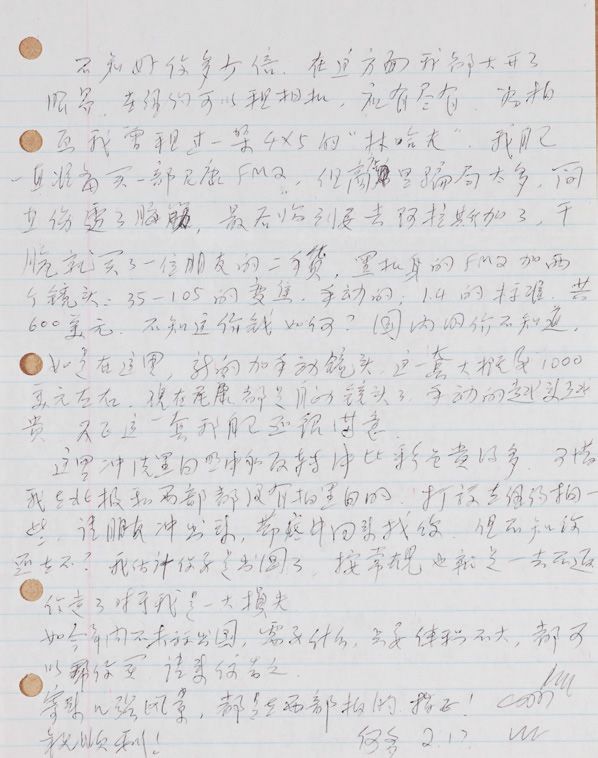 不知好你多少倍. 在这方面我都大开了
眼界. 在纽约可以租相机, 应有尽有.
且我曾租过一架4×5的"林哈夫". 我自己
一直准备买一部尼康FM2, 但 里骗局太多,
直伤透了脑筋, 最后临到要去阿拉斯加了, 干
脆就买了一位朋友的二手货, 黑机身的FM2加两
个镜头: 35-105的变焦, 手动的, 1.4的标准. 共
600美元. 不知这价钱如何? 国内的价不知道,
如是在这里, 新的加手动镜头, 这一套大概要1000
美元左右. 现在尼康都是自动镜头了, 手动的越来越
贵. 反正这一套我自己还很满意.
这里冲洗黑白照片和放大 比彩色贵得多. 可惜
我在北极和西部都没有拍黑白的. 打算在纽约拍一
些, 请朋友冲出来, 带底片回来找你. 但不知你
还在不? 我估计你要是出国了, 按常规也就是一去不返
任意了 对于我是一大损失
如今年内不打算出国, 需要什么, 只要体积不大, 都可
以帮你买 请来信告之.
寄来几张风景, 都是在西部拍的. 指正!
祝顺利! 何多 2.17.